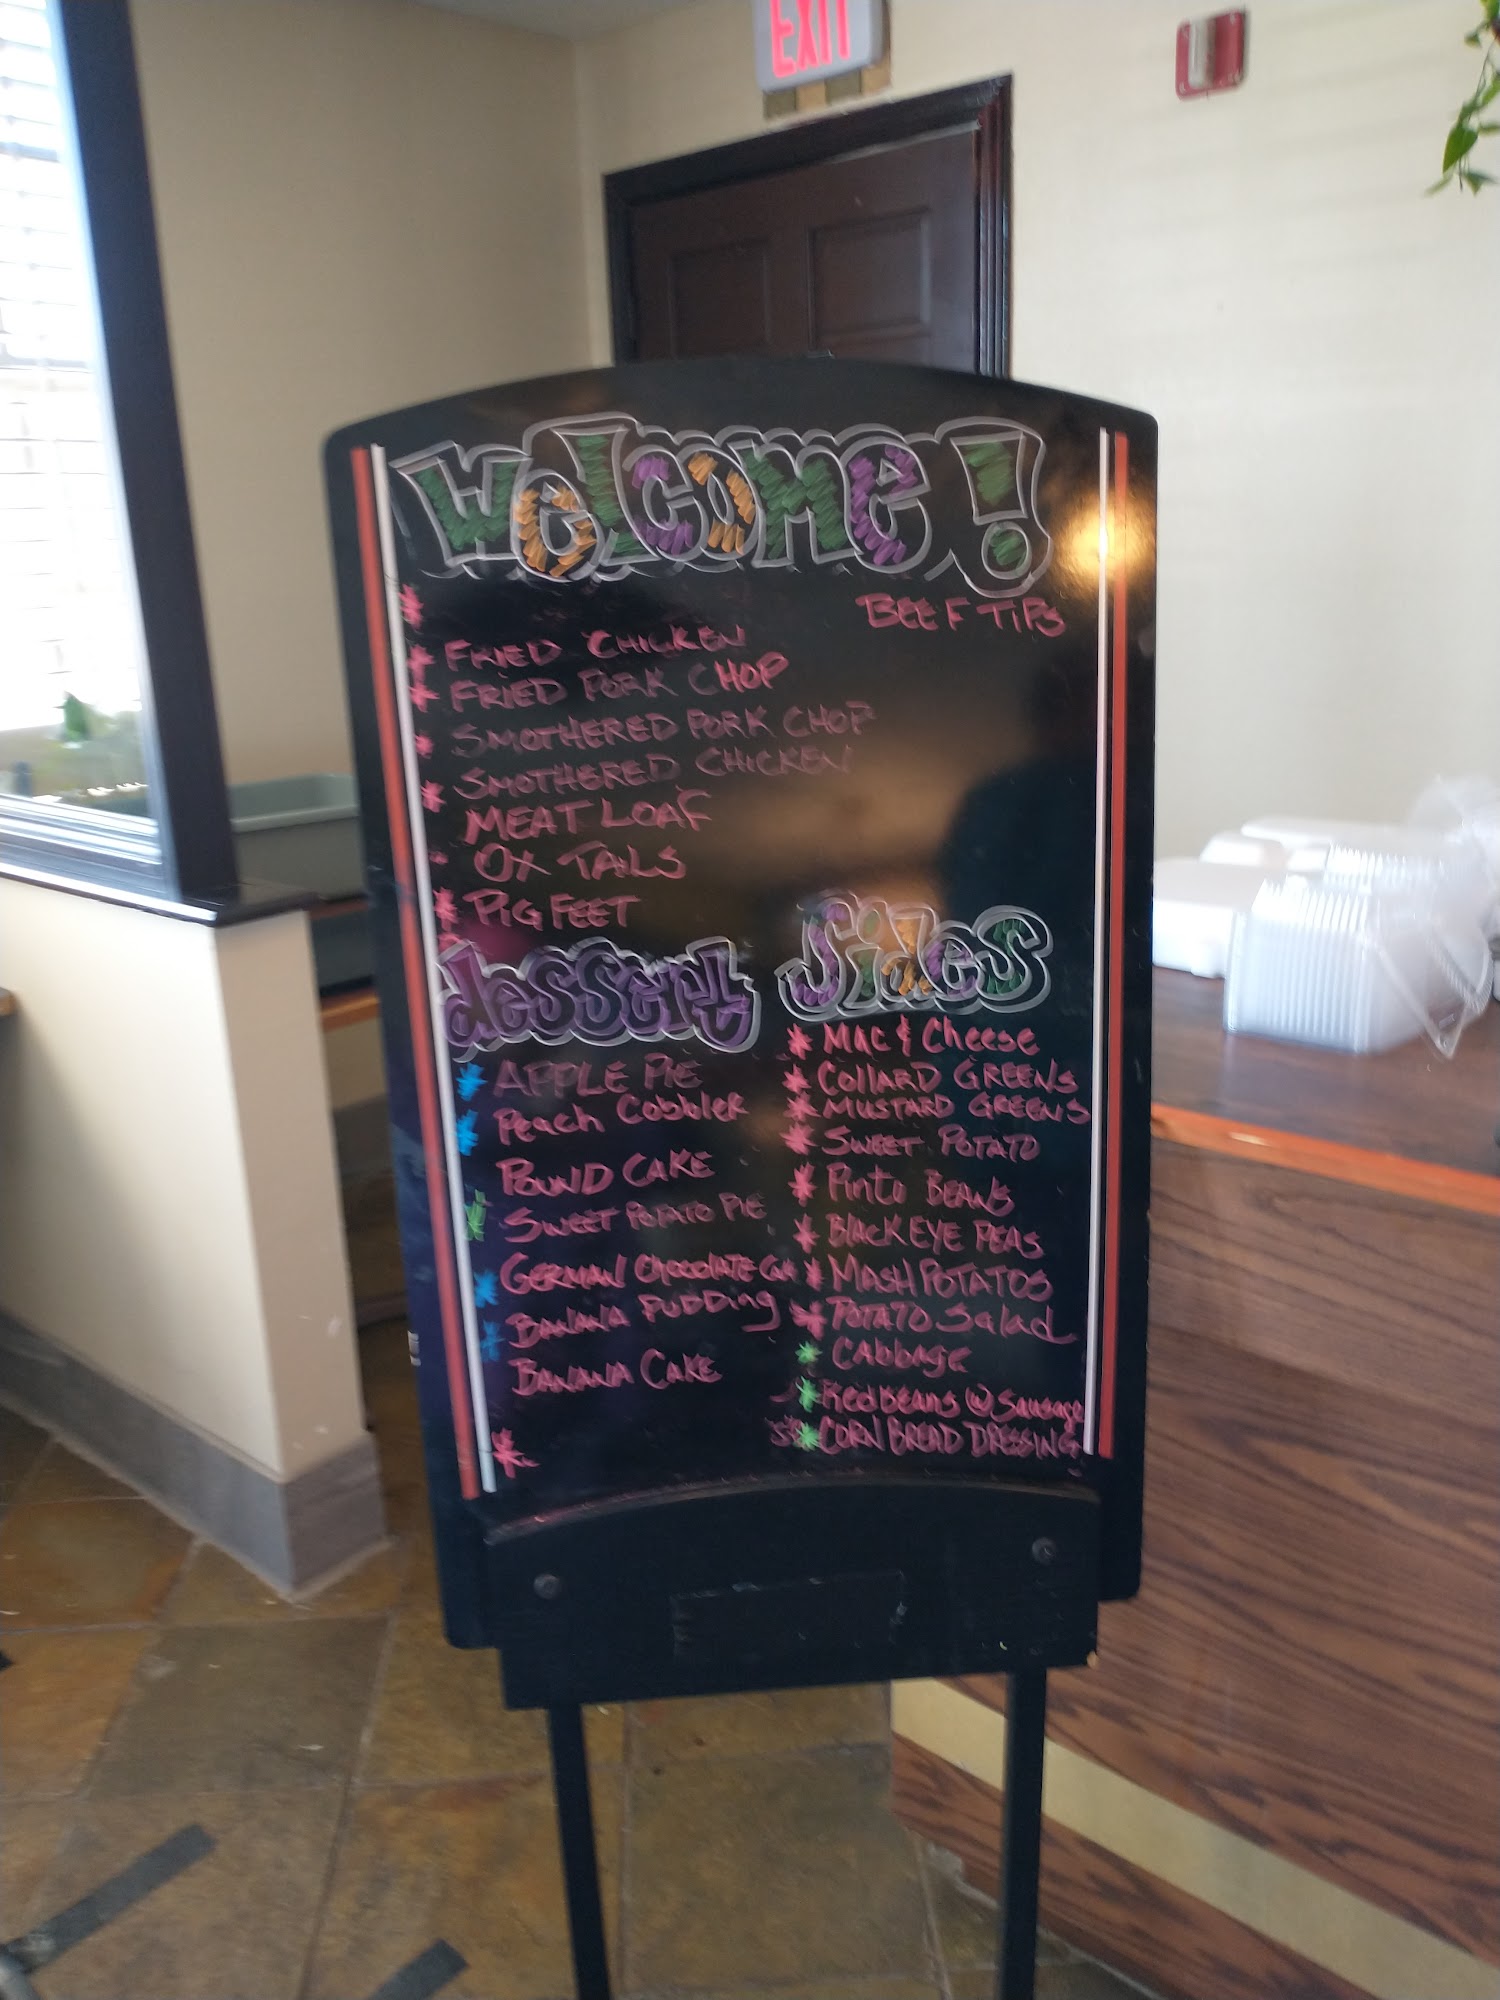 EXIT
Welcome!
BEEF TIPS
* FRIED CHICKEN
* FRIED PORK CHOP
* SMOTHERED PORK CHOP
* SMOTHERED CHICKEN
MEAT LOAF
OX TAILS
* PIG FEET
dessert
* APPLE PIE
* Peach Cobbler
POUND CAKE
* SWEET POTATO PIE
* GERMAN Chocolate
* BANANA PUDDING
BANANA CAKE
*
Sides
* MAC & Cheese
* COllARD GREENS
* MUSTARD GREENS
* SWEET POTATO
* Pinto BEANS
* BLACK EYE PEAS
* MASH POTATOS
* POTATO Salad
* CAbbAge
* Red beans w Sausage
* CORN BREAD DRESSING